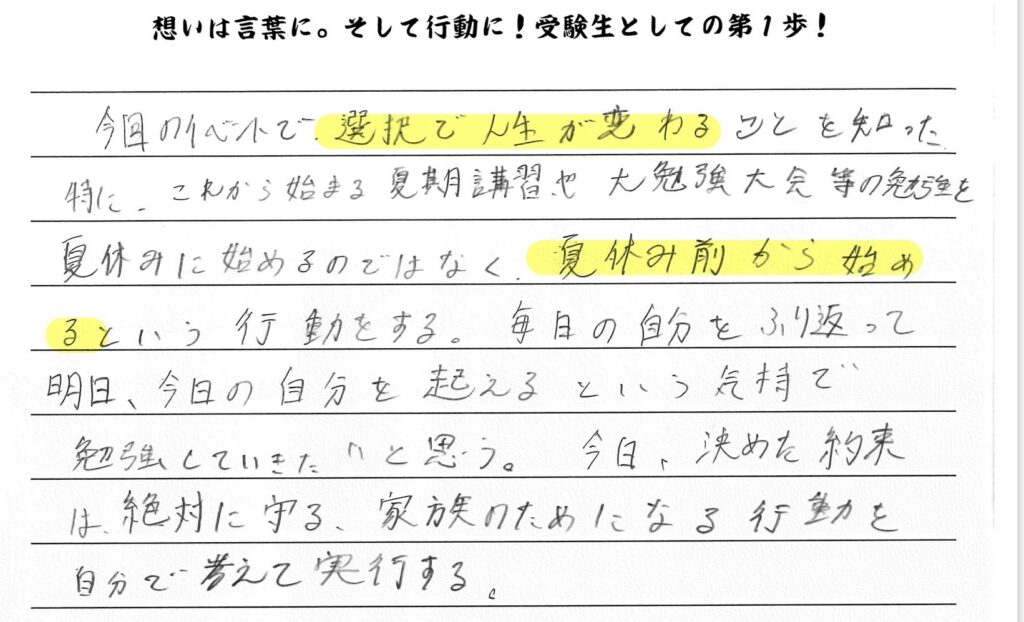 想いは言葉に。そして行動に！受験生としての第１歩！
今回のイベントで、選択で人生が変わることを知った。
特に、これから始まる夏期講習や大勉強大会等の勉強を
夏休みに始めるのではなく、夏休み前から始め
るという行動をする。毎日の自分をふり返って
明日、今日の自分を起えるという気持で
勉強していきたいと思う。今日、決めた約束
は、絶対に守る、家族のためになる行動を
自分で考えて実行する。